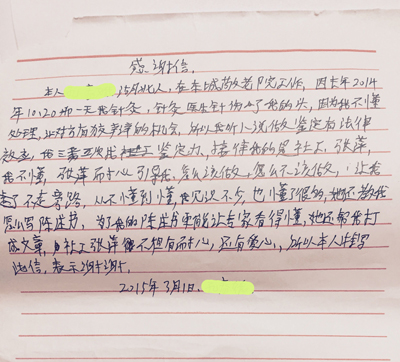 感谢信
本人 河北人，在东城敬老院工作，因去年2014
年10.20那一天我针灸，针灸医生针伤了我的头，因为我不懂
处理，对方有放弃的机会，所以我听小说做鉴定有法律
效力，我三番五次 社工 鉴定 ，接待我的是社工，张萍，
我不懂，张萍耐心引导我，怎么该做，怎么不该做，让我
不走弯路，从不懂到懂，我见识不少，也懂了很多，她还教我
怎么写陈述书，为了我的陈述书更能让专家看得懂，她还帮我打
成文章，社工张萍 不但有耐心，还有爱心，所以本人 写
此信，表示谢谢。
2015年3月1日.